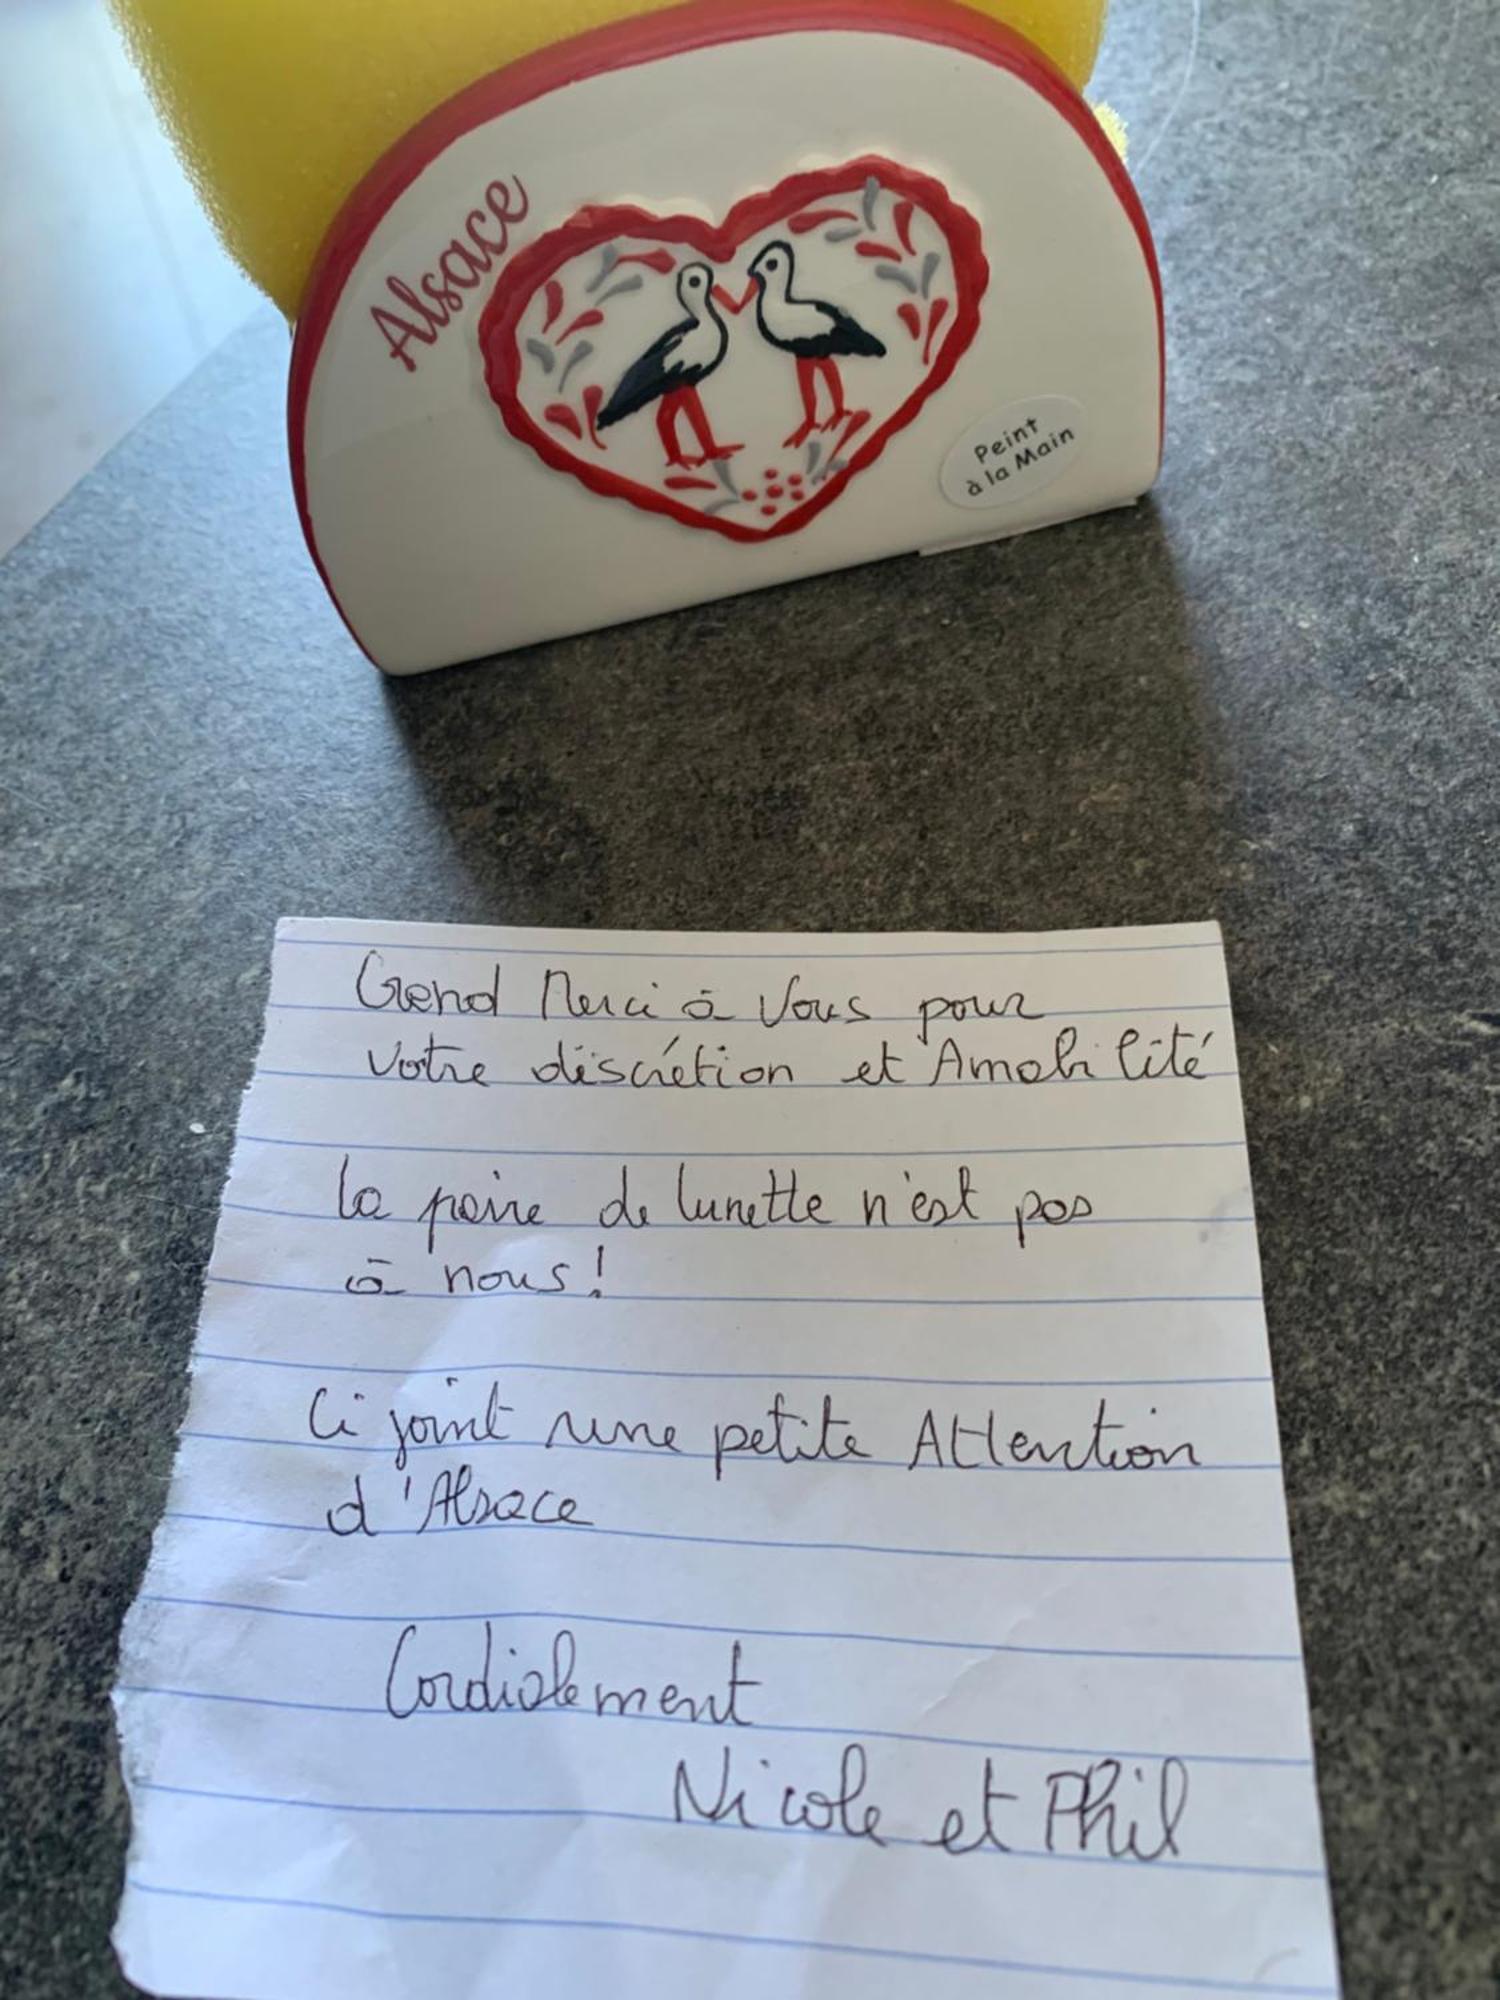 Alsace
Peint
à la Main
Grand Merci à Vous pour
votre discrétion et Amabilité
la paire de lunette n'est pas
à nous!
Ci joint une petite Attention
d'Alsace
Cordialement
Nicole et Phil